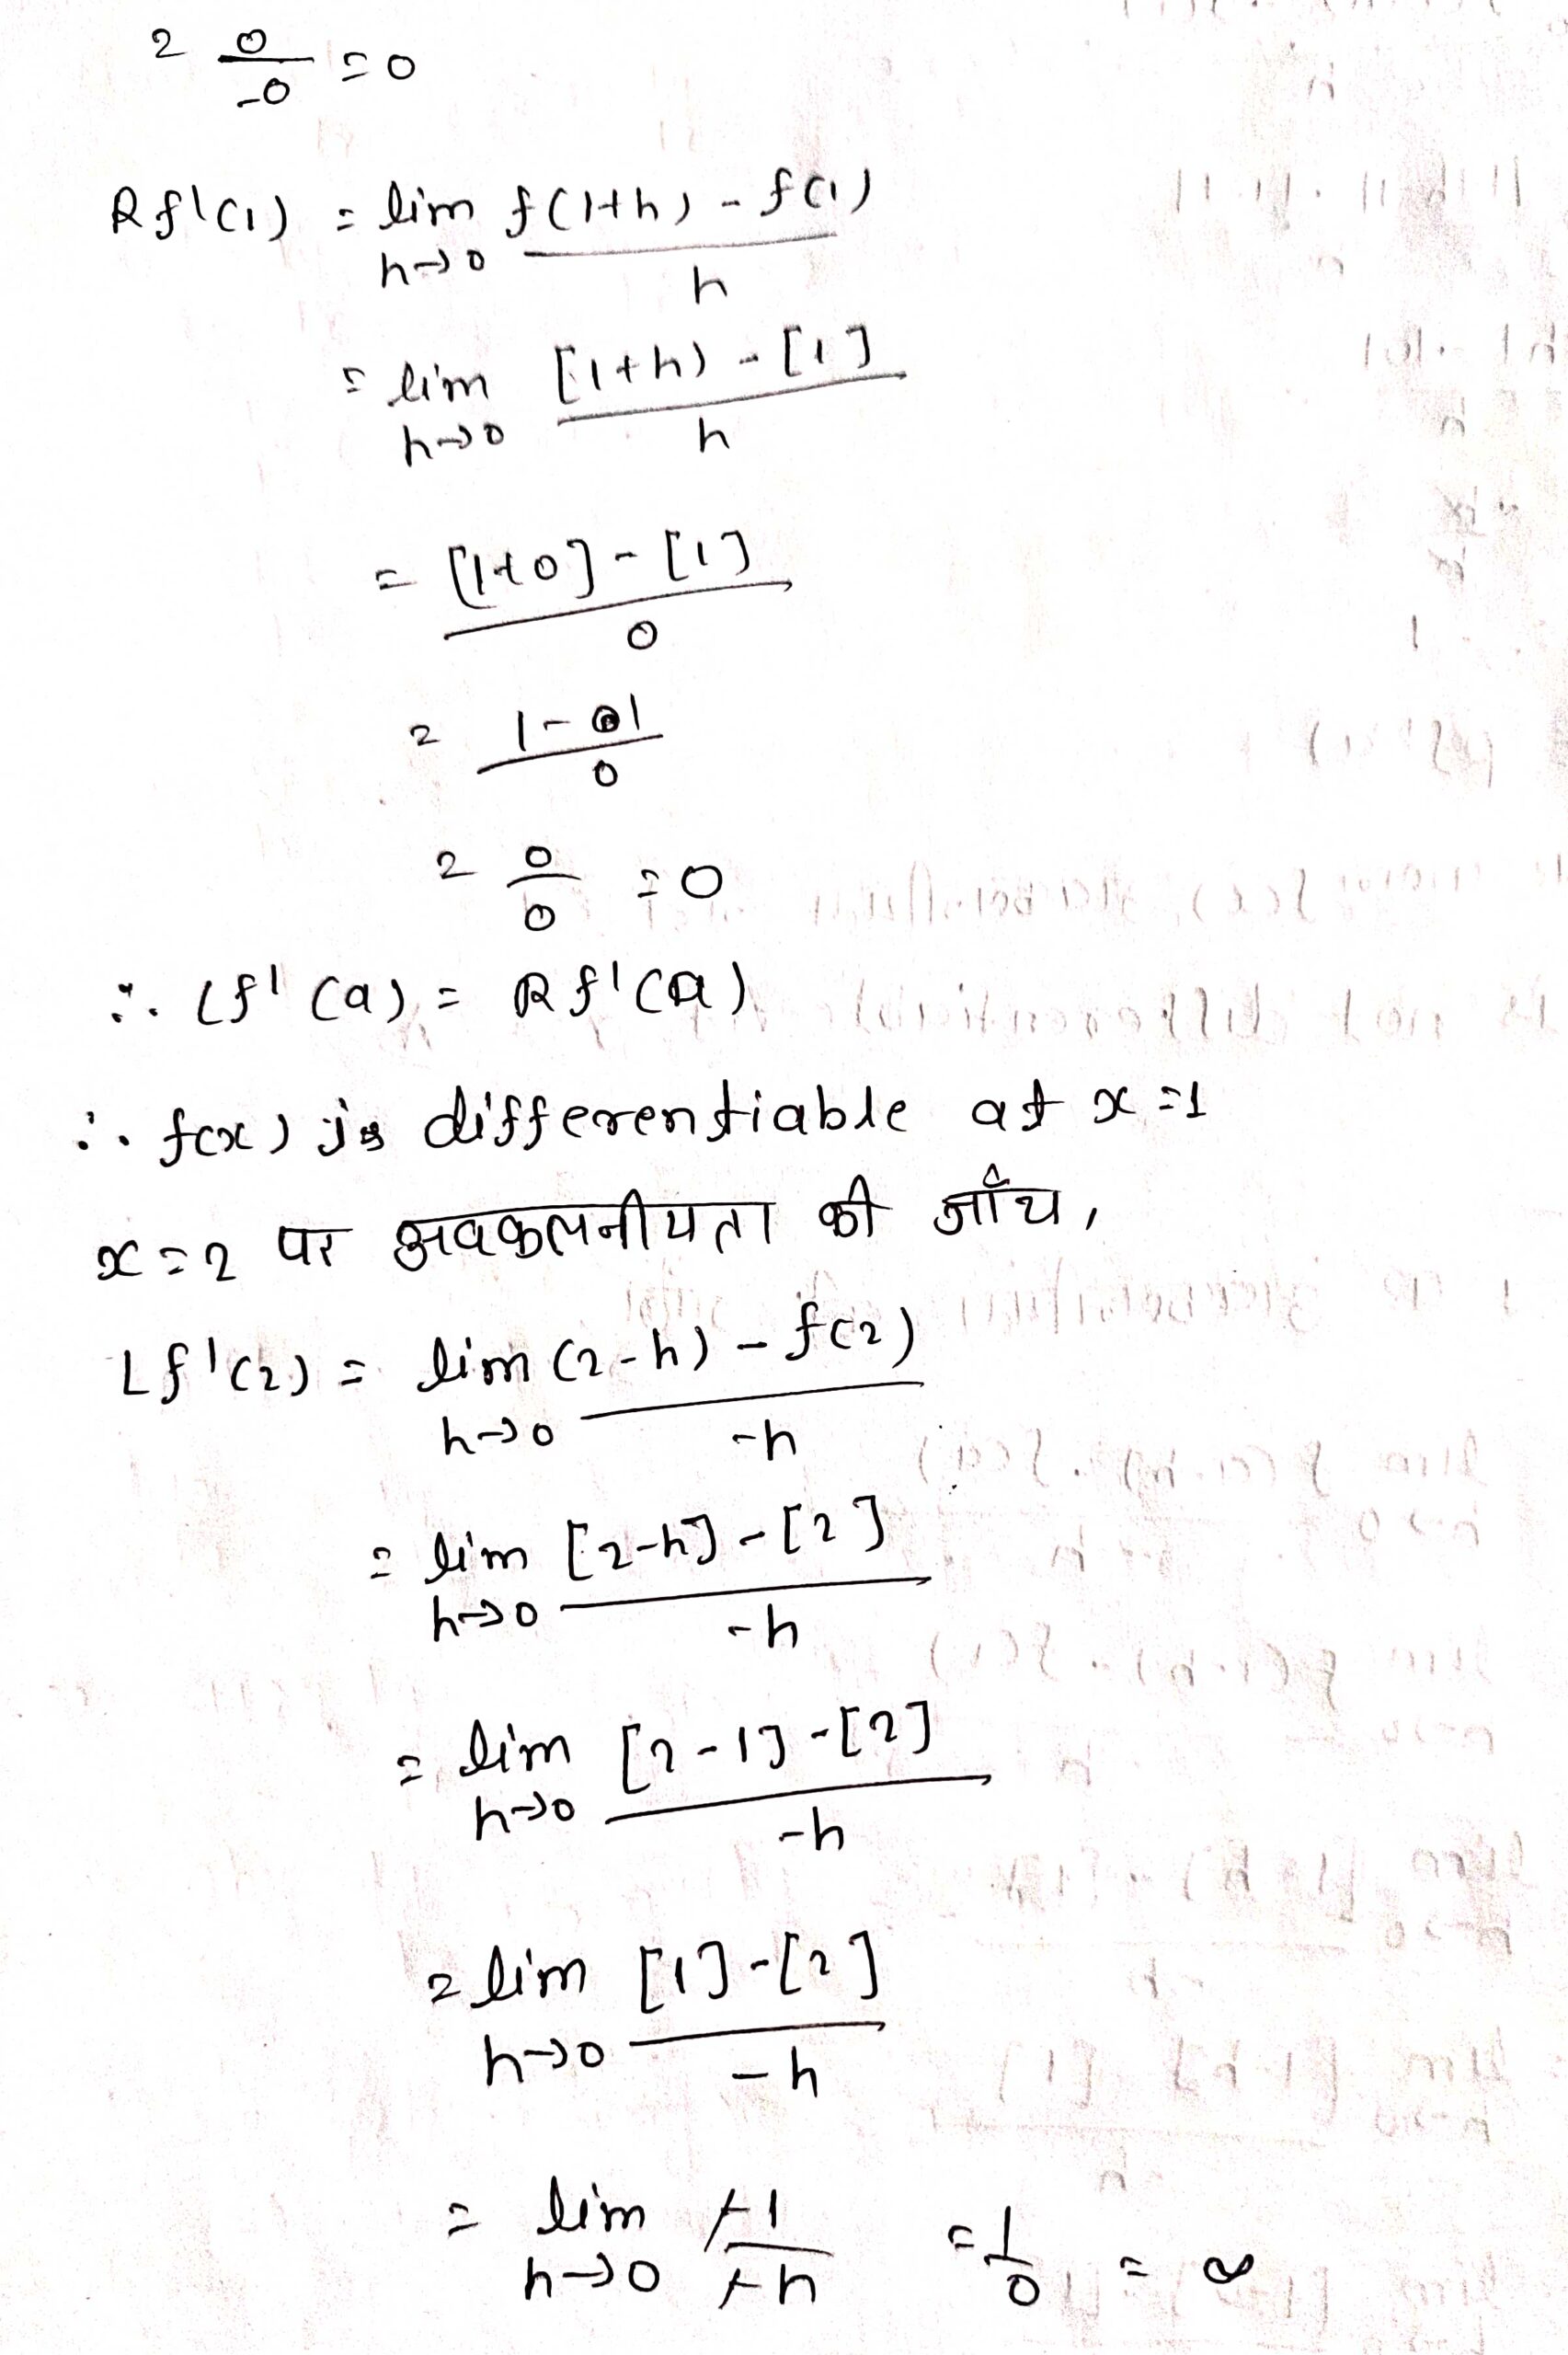 = 0/-0 = 0
Rf'(1) = lim h→0 f(1+h) - f(1) / h
= lim h→0 [1+h) - [1] / h
= [1+0] - [1] / 0
= 1-1 / 0
= 0/0 = 0
∴ Lf'(a) = Rf'(a)
∴ f(x) is differentiable at x=1
x=2 पर अवकलनीयता की जाँच,
Lf'(2) = lim h→0 (2-h) - f(2) / -h
= lim h→0 [2-h] - [2] / -h
= lim h→0 [2-1] - [2] / -h
= lim h→0 [1] - [2] / -h
= lim h→0 -1 / -h = 1/0 = ∞